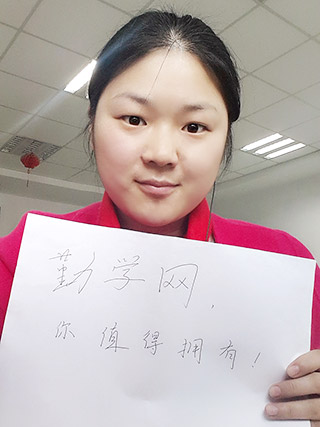 勤学网,
你值得拥有!